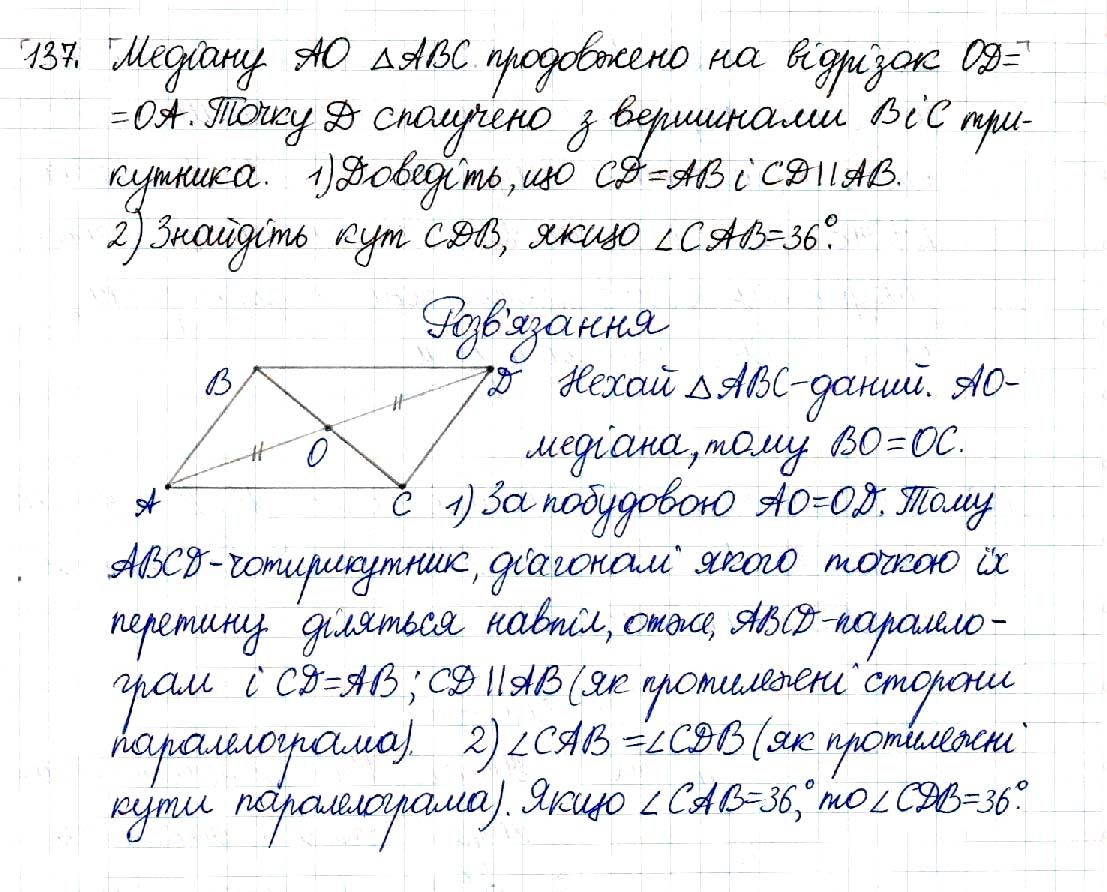 137. Медіану AO △ABC продовжено на відрізок OD=
=OA. Точку D сполучено з вершинами B і C три-
кутника. 1) Доведіть, що CD=AB і CD||AB.
2) Знайдіть кут CDB, якщо ∠CAB=36°.
Розв'язання
B
D
O
A
C
Нехай △ABC-даний. AO-
медіана, тому BO=OC.
1) За побудовою AO=OD. Тому
ABCD-чотирикутник, діагоналі якого точкою їх
перетину діляться навпіл, отже, ABCD-паралело-
грам і CD=AB; CD||AB (як протилежні сторони
паралелограма). 2) ∠CAB=∠CDB (як протилежні
кути паралелограма). Якщо ∠CAB=36°, то ∠CDB=36°.